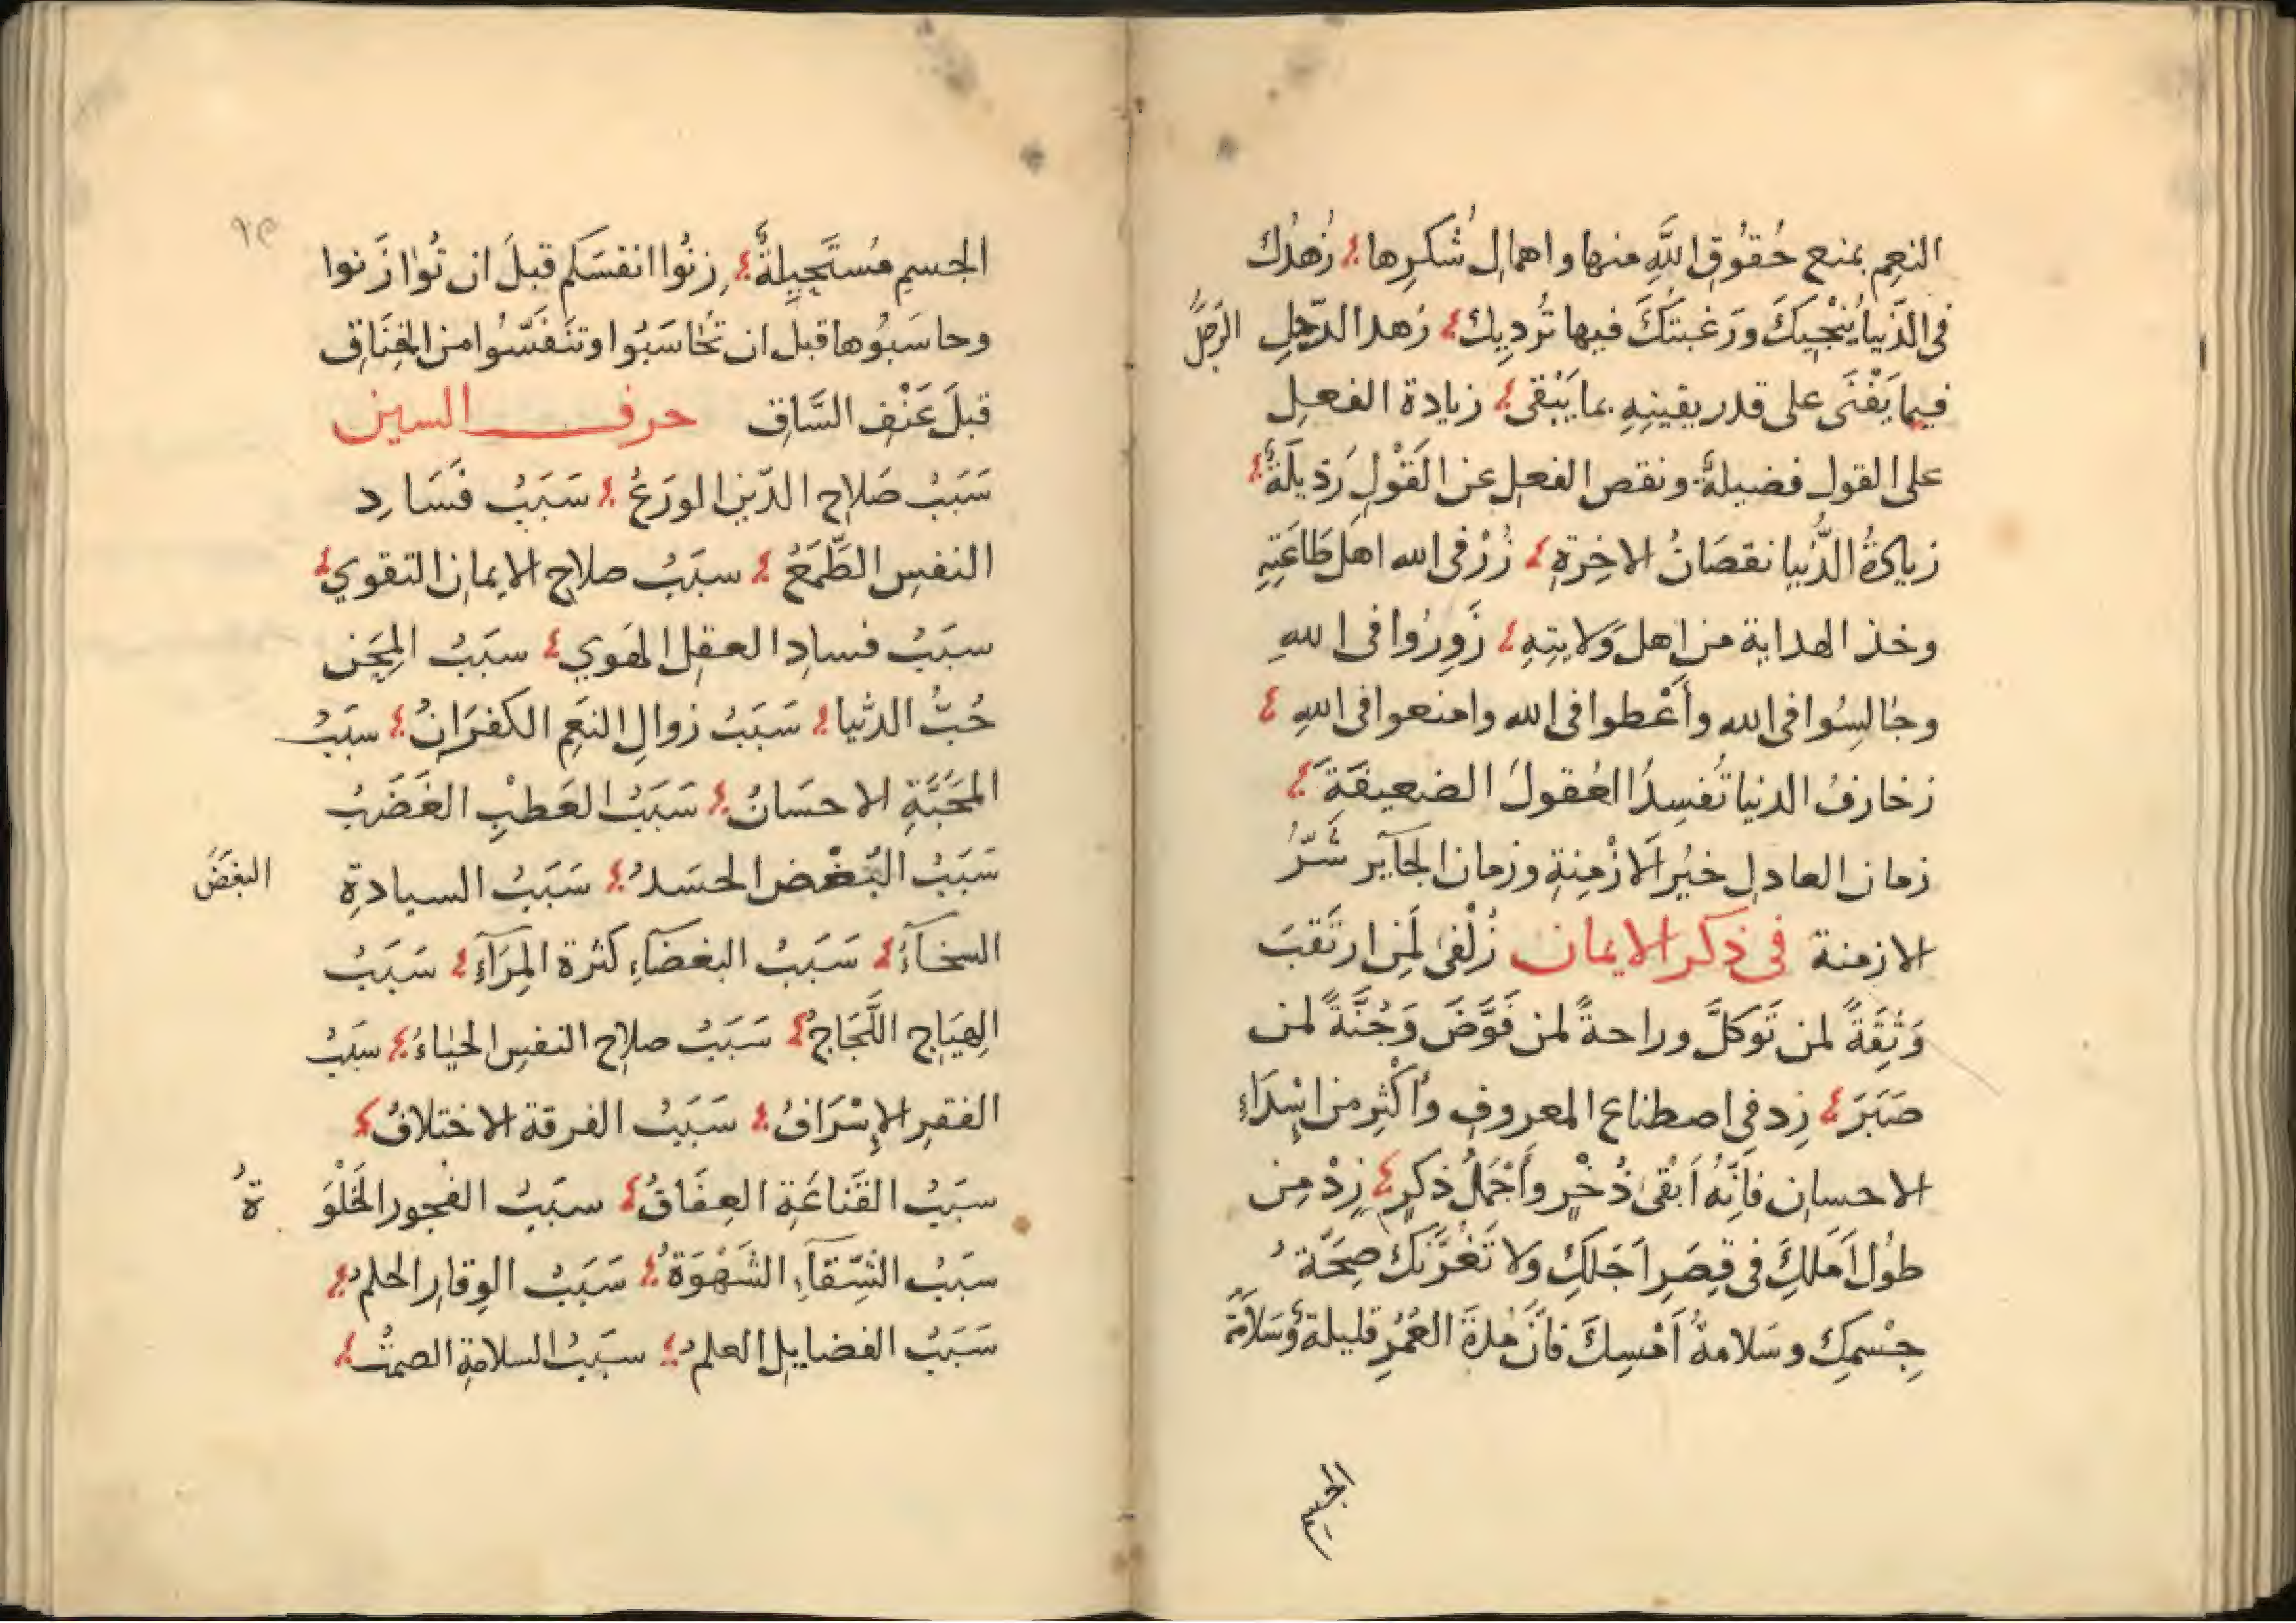 النعِم بمنع حُقوُقِ اللَّهِ منها واهمالِ شُكرِها زُهدُك
فى الدّنيا يُنْجِيكَ ورَغبتُكَ فيها تُرْدِيك زهد الرّجلِ
الرَجلُ
فيما يَفْنَى على قدر يقينِهِ بما يَبْقى زيادة الفعلِ
على القولِ فضيلةٌ ونقص الفعلِ عن القَوْلِ رَذيلَةٌ
زيادَةُ الدُّنيا نقصَانُ الاخِرَةِ زُرْ فى الله اهلَ طَاعَتِهِ
وخذ الهداية من اهل وَلايتِهِ زَوِرُوا فى اللهِ
وجٰالِسُوا فى الله وأَعْطوا فى الله وامنعوا فى اللهِ
زخارفُ الدنيا تُفسِدُ العُقولَ الضعيفَةَ
زمان العادلِ خيْرُ الَازْمِنةِ وزمان الجآير شَرّ
الازمنة فى ذكر الايمان زُلْفىٰ لمَنِ ارتَقبَ
وَثِقَةً لمن تَوَكلَّ وراحةً لمن فَوَّضَ وَجُنَّةً لمن
صَبَرَ زِد فى اصطناع المعروفِ وأَكْثِر من اسْدَاءِ
الاحسانِ فانّهُ اَبْقىٰ ذُخْرٍ وأَجْمَلُ ذكرٍ زِدْ مِن
طوُل اَمَلكِ فى قِصَرِ اَجَلكِ وَلا تَغُرَّنّكَ صِحَّةُ
جِسْمكِ وسَلامةُ اَمْسِكَ فانَّ مُدةَ العُمُرِ قليلة وَسَلامَة
الجسم
٩٥
الجسمِ مُستَحِيلةٌ زِنُوا انفسَكم قبلَ ان تُوٰازَنوا
وحاسَبُوها قبل ان تُحٰاسَبُوا وتنَفَسَّوُا من الخِنَاقِ
قبلَ عَنْفِ السَّاقِ حرف السين
سَبَبُ صَلاحِ الدّينِ الورَعُ سَبَبُ فَسَادِ
النفسِ الطَّمَعُ سبَبُ صلاحِ الايمانِ التقوي
سبَبُ فسادِ العقلِ الهَوي سبَبُ المِحَن
حُبُّ الدنُّيا سَبَبُ زوالِ النعَمِ الكفرَانُ سبَبُ
المَحَبَّةِ الاحسَانُ سَبَبُ العَطبِ الغَضَبُ
سَبَبُ البُغْضِ الحسَدُ سَبَبُ السيادةِ
البغضَُ
السخآءُ سَبَبُ البغضَآءِ كثرة المِرَآءِ سَبَبُ
الهيَاجِ اللَّجَاجُ سَبَبُ صلاحِ النفسِ الحيٰاءُ سبَبُ
الفقرِ الاِسْرَافُ سَبَبُ الفرقة الاختلافُ
سبَبُ القَنَاعَةِ العِفَافُ سبَبُ الفجور الخَلْوَ
ةُ
سبَبُ الشّقآءِ الشَهْوَةُ سَبَبُ الوِقارِ الحلمُ
سَبَبُ الفضايلِ العلمُ سبَبُ السلامةِ الصمتُ